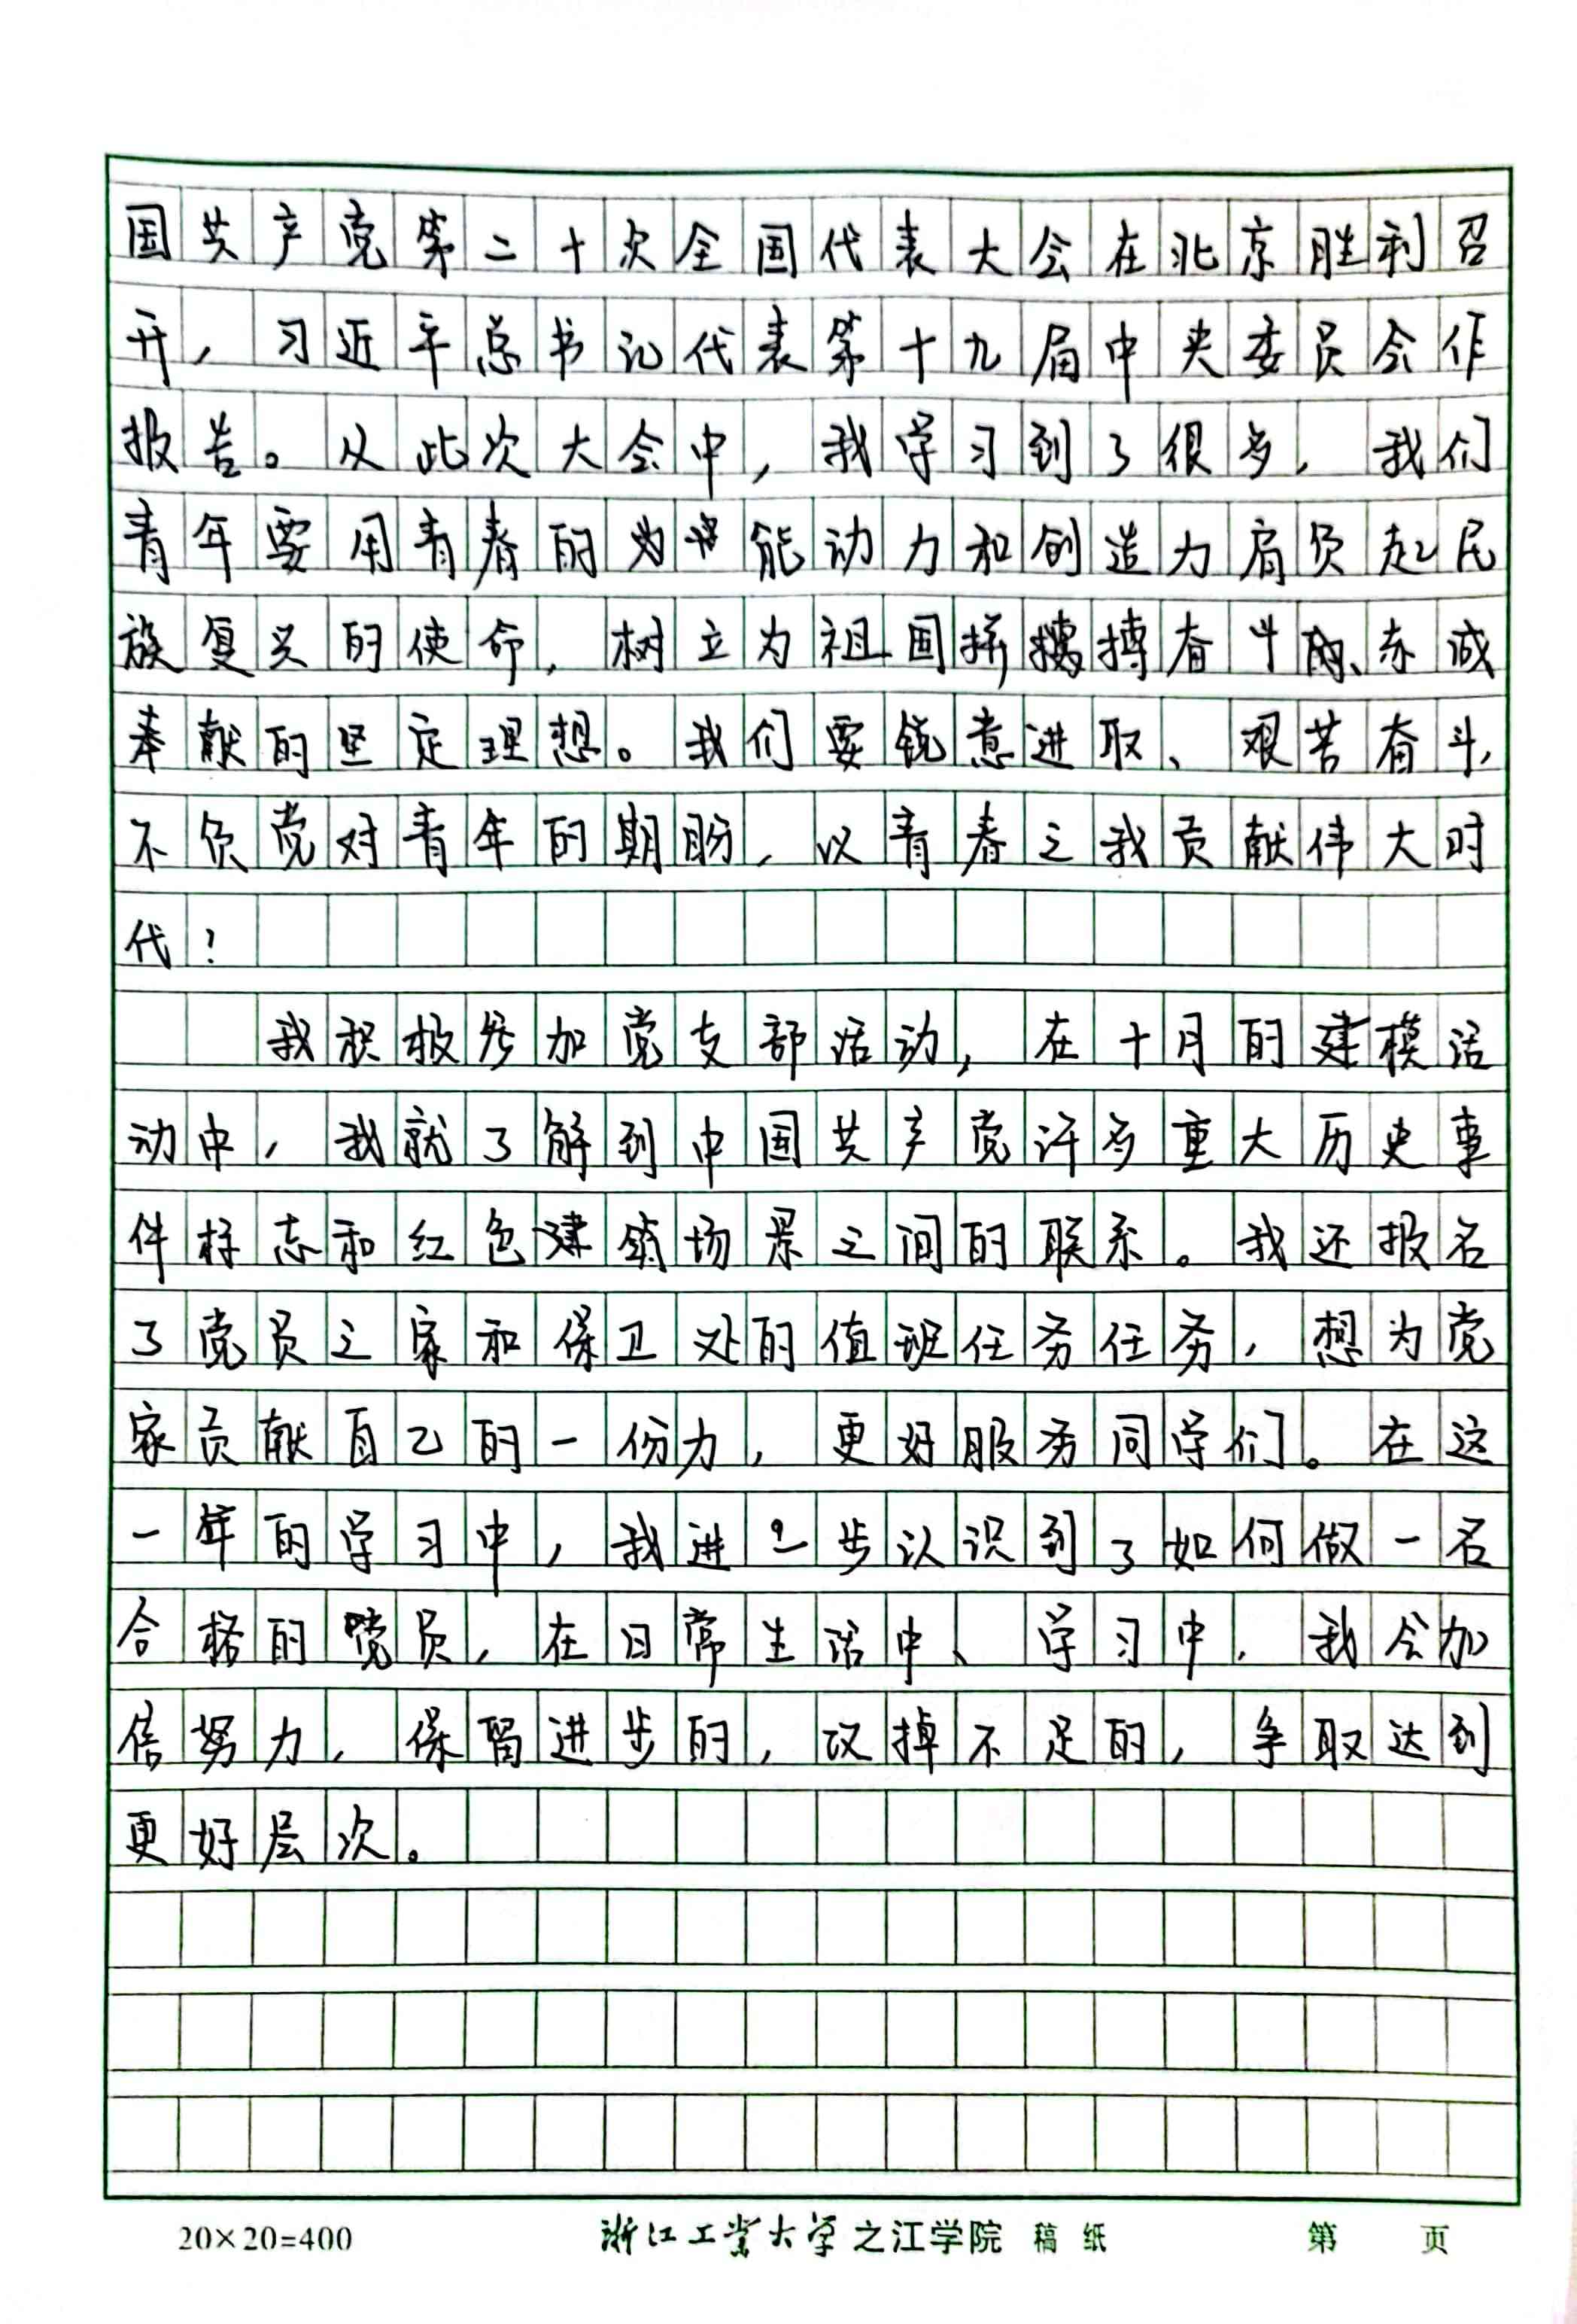 国共产党第二十次全国代表大会在北京胜利召
开，习近平总书记代表第十九届中央委员会作
报告。从此次大会中，我学习到了很多，我们
青年要用青春的能动力和创造力肩负起民
族复兴的使命，树立为祖国拼搏奋斗、赤诚
奉献的坚定理想。我们要锐意进取、艰苦奋斗，
不负党对青年的期盼，以青春之我贡献伟大时
代！
我积极参加党支部活动，在十月的建模活
动中，我就了解到中国共产党许多重大历史事
件标志和红色建筑场景之间的联系。我还报名
了党员之家和保卫处的值班任务任务，想为党
家贡献自己的一份力，更好服务同学们。在这
一年的学习中，我进一步认识到了如何做一名
合格的党员，在日常生活中、学习中，我会加
倍努力，保留进步的，改掉不足的，争取达到
更好层次。
20×20=400 浙江工业大学之江学院 稿纸 第 页